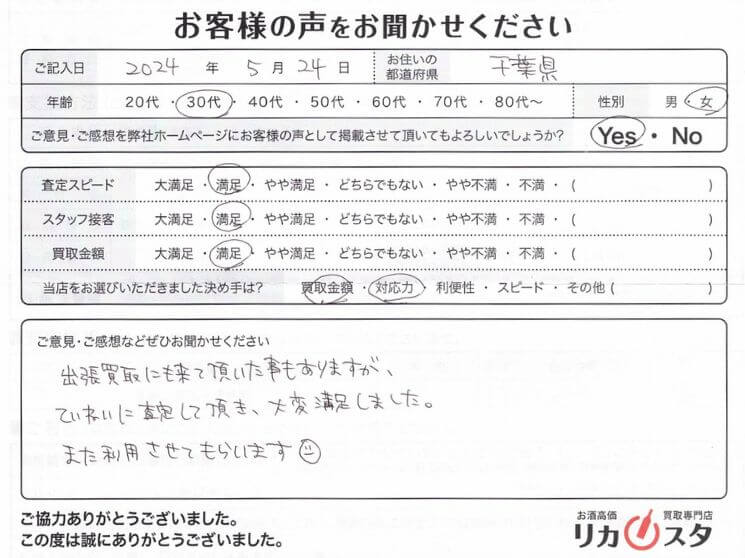 お客様の声をお聞かせください
ご記入日 2024 年 5 月 24 日 お住いの都道府県 千葉県
年齢 20代・30代・40代・50代・60代・70代・80代〜 性別 男・女
ご意見・ご感想を弊社ホームページにお客様の声として掲載させて頂いてもよろしいでしょうか? Yes・No
査定スピード 大満足・満足・やや満足・どちらでもない・やや不満・不満・( )
スタッフ接客 大満足・満足・やや満足・どちらでもない・やや不満・不満・( )
買取金額 大満足・満足・やや満足・どちらでもない・やや不満・不満・( )
当店をお選びいただきました決め手は? 買取金額・対応力・利便性・スピード・その他( )
ご意見・ご感想などぜひお聞かせください
出張買取にも来て頂いた事もありますが、
ていねいに査定して頂き、大変満足しました。
また利用させてもらいます☺
ご協力ありがとうございました。
この度は誠にありがとうございました。
お酒高価 買取専門店
リカスタ